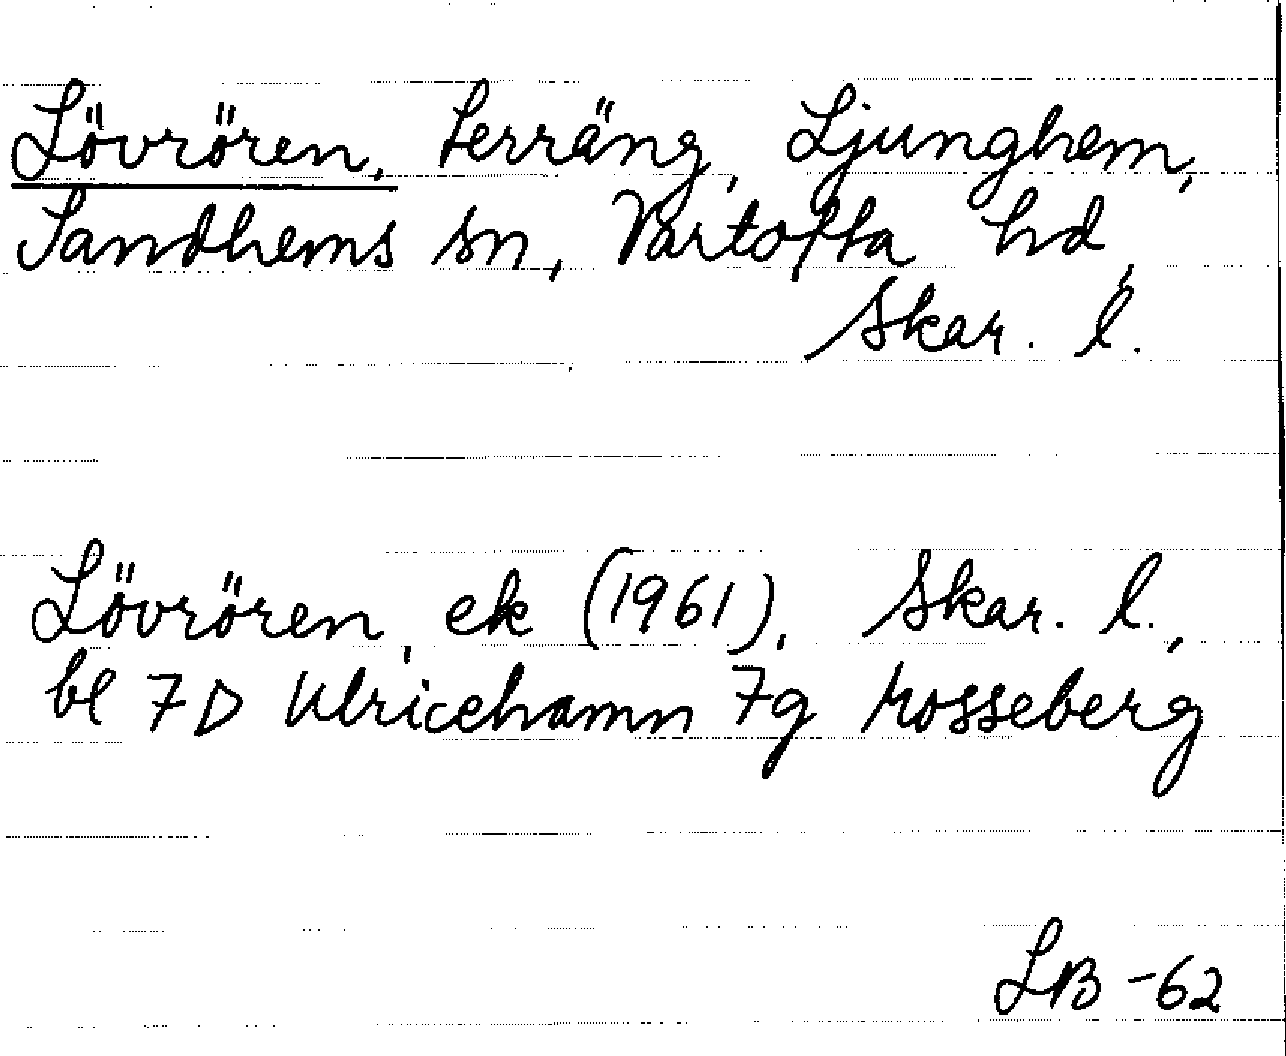 Lövrören, terräng, Ljunghem,
Sandhems sn, Vartofta hd,
Skar. l.
Lövrören, ek (1961), Skar. l.,
bl 7D Ulricehamn 7g Mosseberg
LB -62